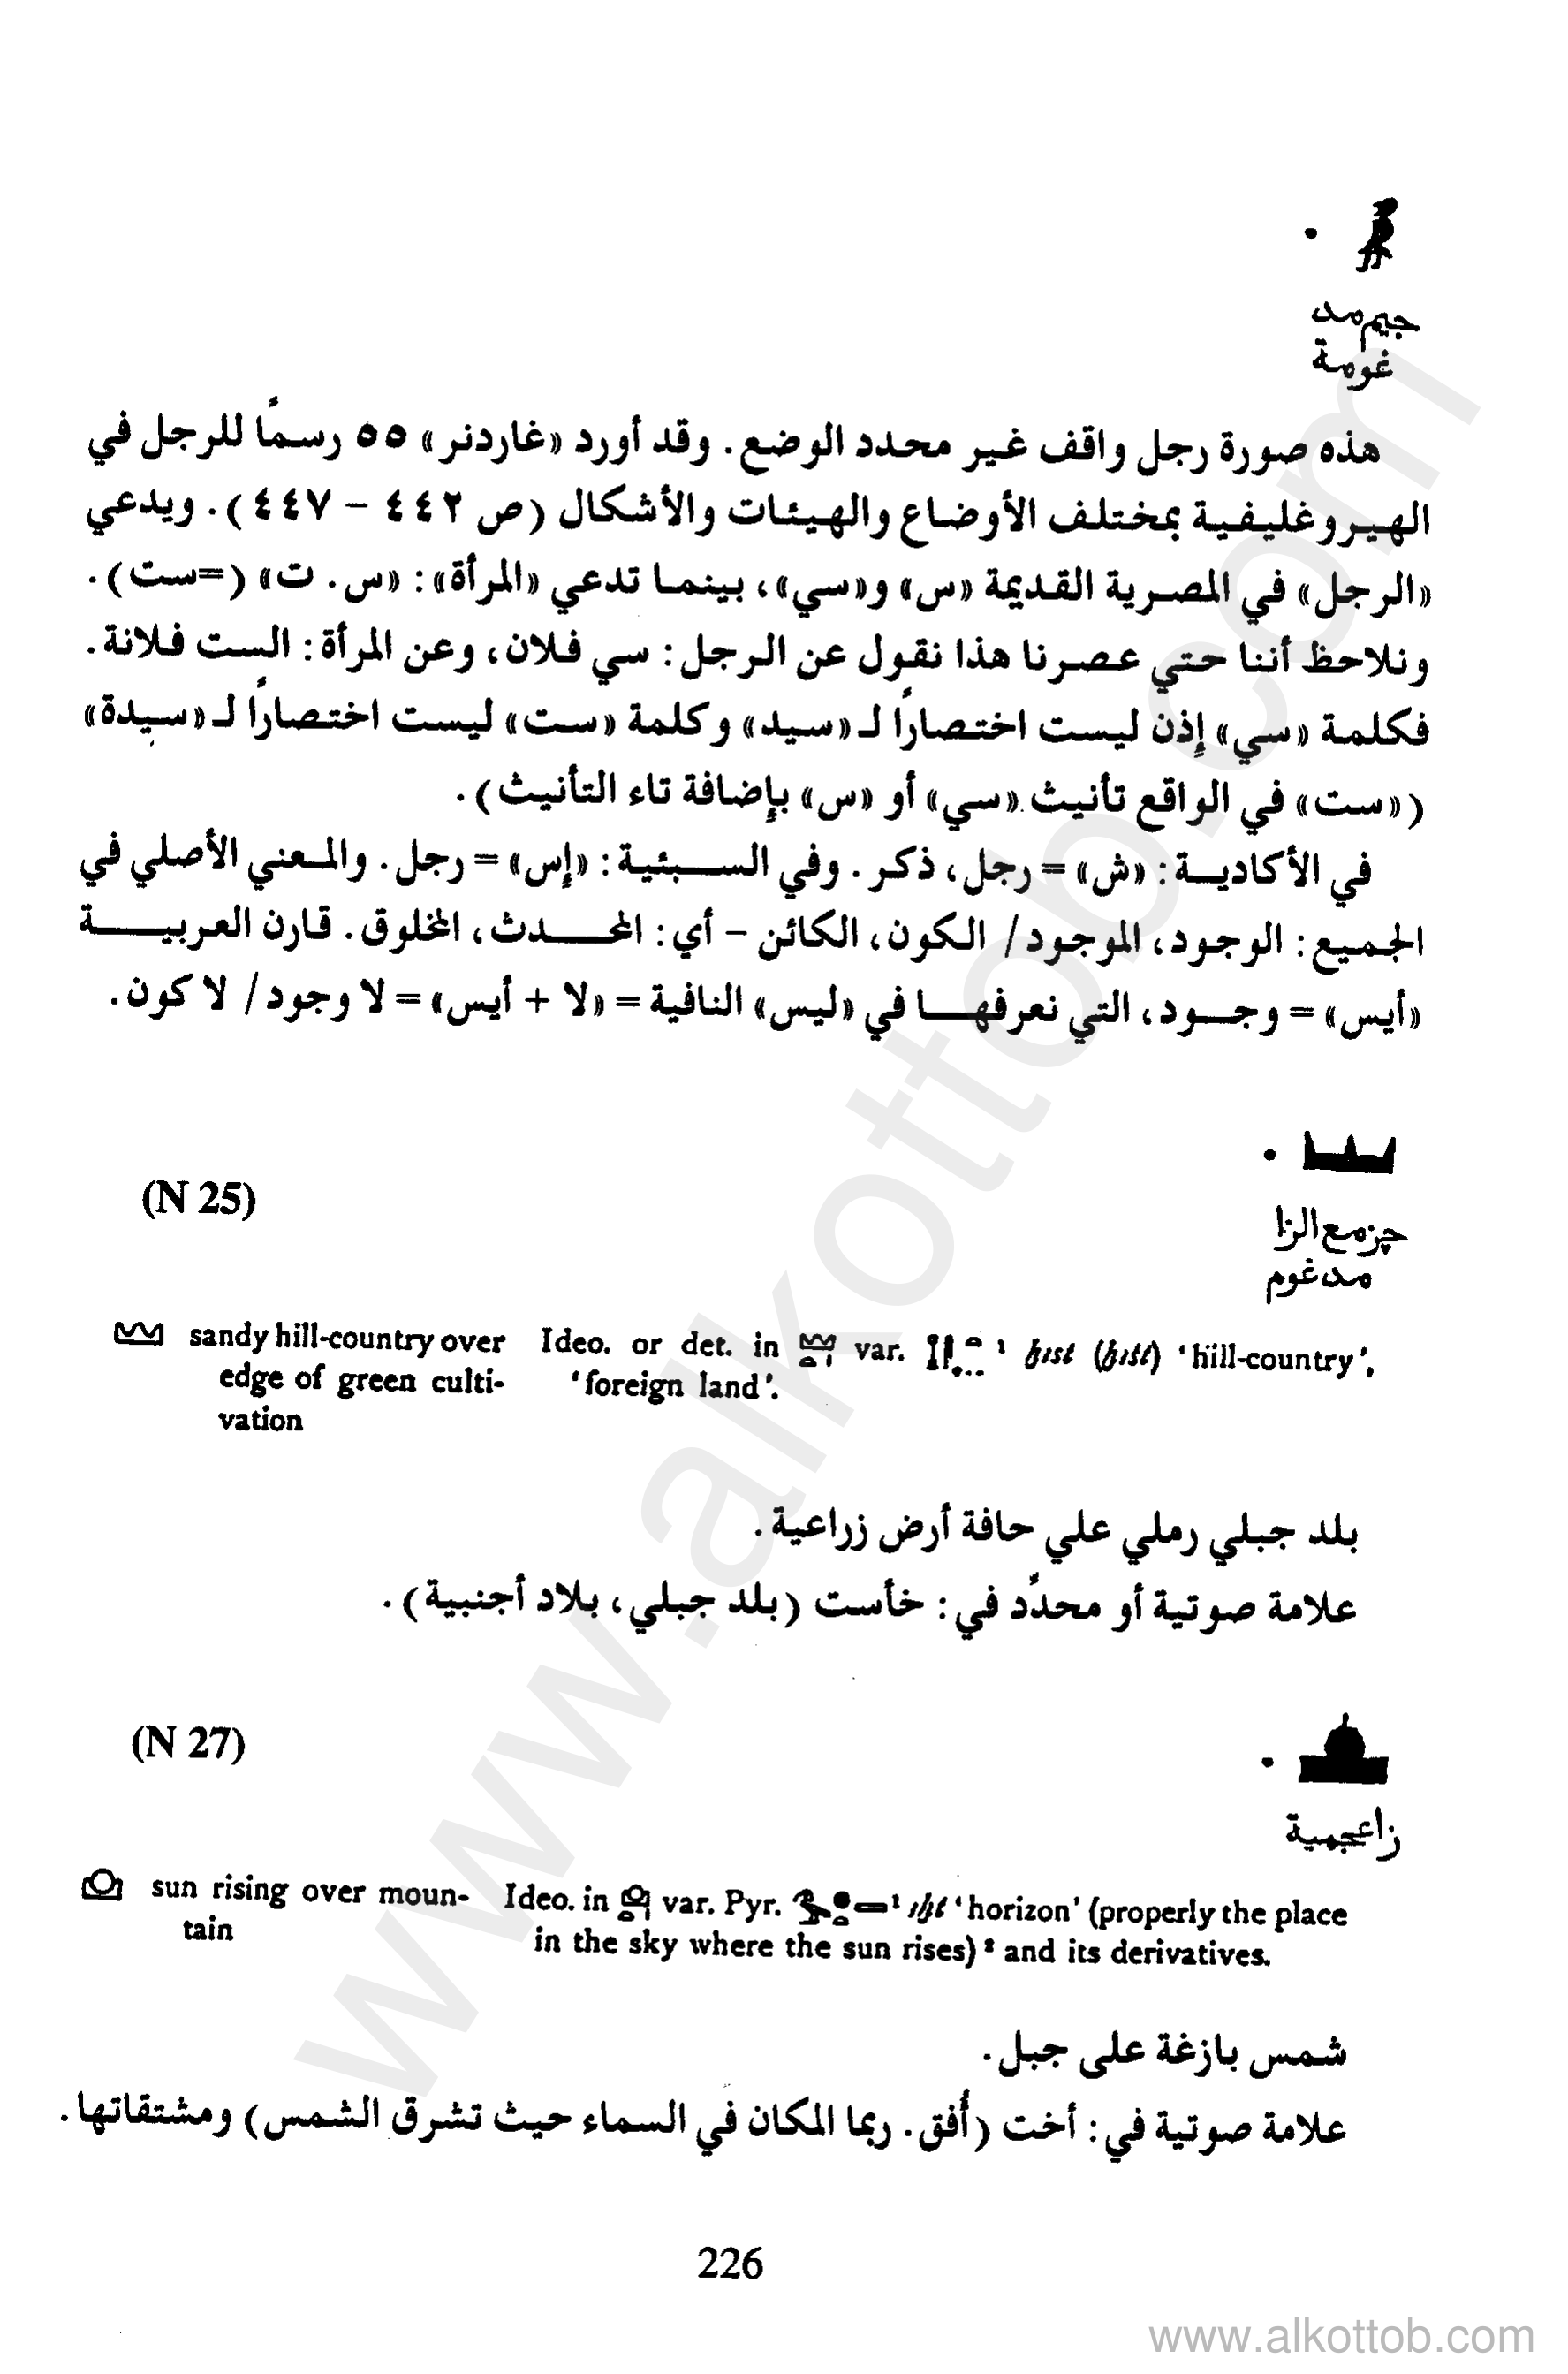 جيم مد
غومة
هذه صورة رجل واقف غير محدد الوضع. وقد أورد «غاردنر» ٥٥ رسماً للرجل في
الهيروغليفية بمختلف الأوضاع والهيئات والأشكال (ص ٤٤٢ – ٤٤٧). ويدعي
«الرجل» في المصرية القديمة «س» و«سي»، بينما تدعي «المرأة»: «س. ت» (=ست).
ونلاحظ أننا حتي عصرنا هذا نقول عن الرجل: سي فلان، وعن المرأة: الست فلانة.
فكلمة «سي» إذن ليست اختصاراً لـ «سيد» وكلمة «ست» ليست اختصاراً لـ «سيدة»
(«ست» في الواقع تأنيث «سي» أو «س» بإضافة تاء التأنيث).
في الأكادية: «ش» = رجل، ذكر. وفي السبئية: «إس» = رجل. والمعني الأصلي في
الجميع: الوجود، الموجود/ الكون، الكائن – أي: المحدث، المخلوق. قارن العربية
«أيس» = وجود، التي نعرفها في «ليس» النافية = «لا + أيس» = لا وجود/ لا كون.
(N 25)
چز مع الزا
مدغوم
sandy hill-country over Ideo. or det. in var. ¹ ḫꜣst (ḫꜣst) ‘hill-country’,
edge of green culti- ‘foreign land’.
vation
بلد جبلي رملي علي حافة أرض زراعية.
علامة صوتية أو محدّد في: خأست (بلد جبلي، بلاد أجنبية).
(N 27)
زاعجمية
sun rising over moun- Ideo. in var. Pyr. ¹ ꜣḫt ‘horizon’ (properly the place
tain in the sky where the sun rises) ² and its derivatives.
شمس بازغة على جبل.
علامة صوتية في: أخت (أُفق. ربما المكان في السماء حيث تشرق الشمس) ومشتقاتها.
226
www.alkottob.com
www.alkottob.com